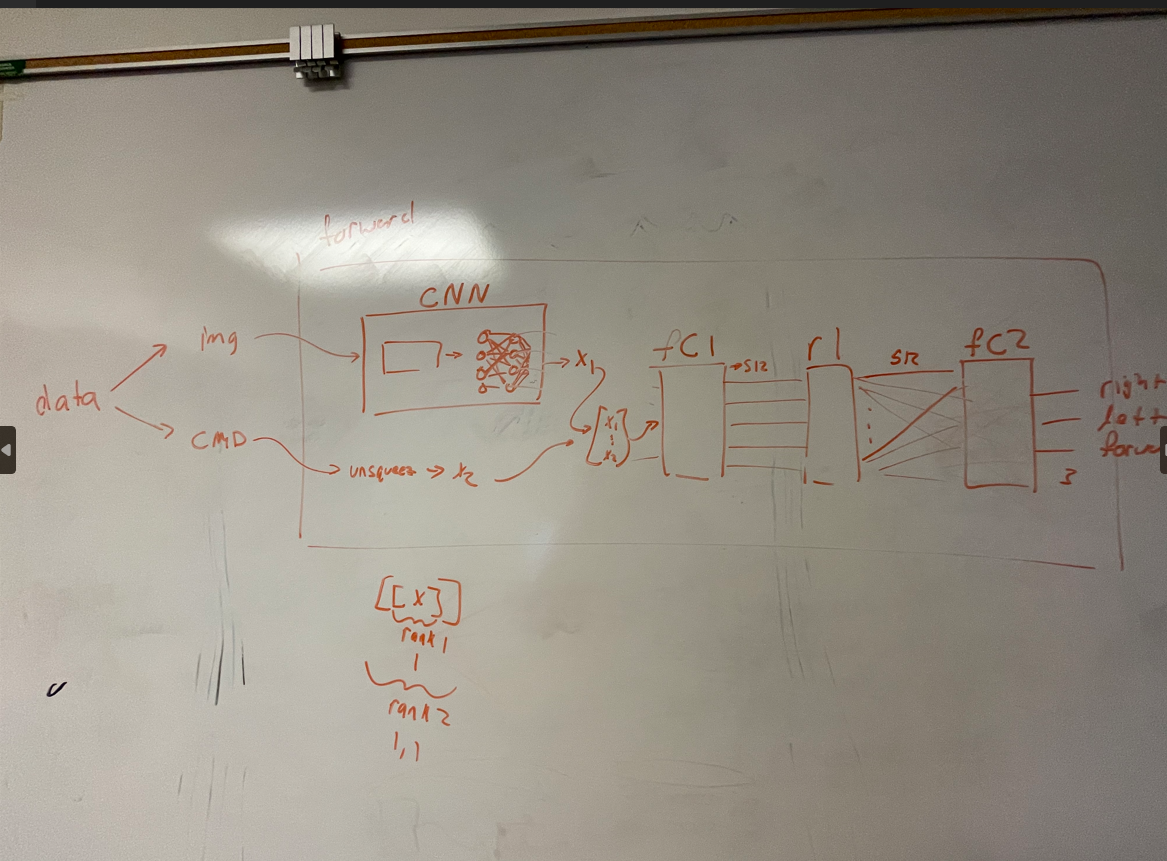 forward
CNN
img
data
CMD
unsqueez → x2
→ x1
[x1
⋮
x2]
fC1
→512
r1
512
fC2
right
left
3
[[x]]
rank 1
1
rank 2
1,1